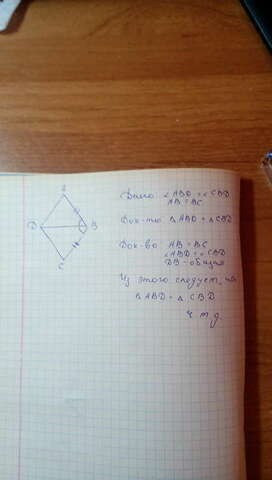 A
D
B
C
Дано ∠ABD = ∠CBD
AB = BC
Док-ть ΔABD = ΔCBD
Док-во AB = BC
∠ABD = ∠CBD
DB - общая
Из этого следует, что
ΔABD = ΔCBD
ч т д